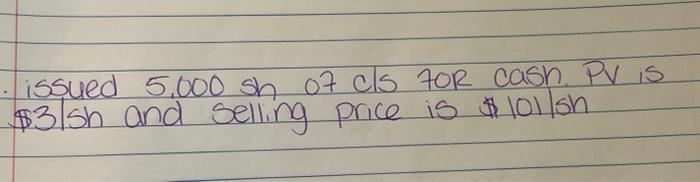 . issued 5,000 sh of c/s for cash. PV is
$3/sh and selling price is $101/sh